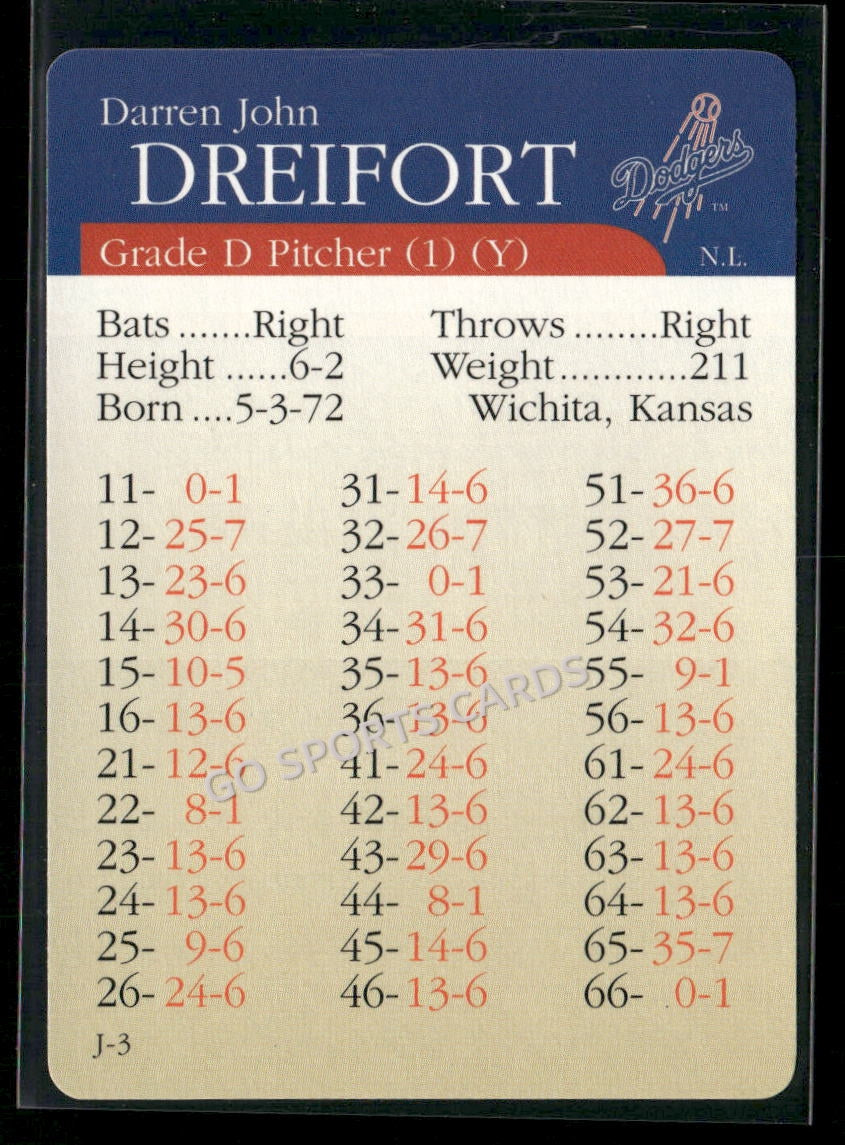 Darren John
DREIFORT
Dodgers
TM
Grade D Pitcher (1) (Y)
N.L.
Bats .......Right Throws ........Right
Height ......6-2 Weight............211
Born ....5-3-72 Wichita, Kansas
11- 0-1 31-14-6 51-36-6
12-25-7 32-26-7 52-27-7
13-23-6 33- 0-1 53-21-6
14-30-6 34-31-6 54-32-6
15-10-5 35-13-6 55- 9-1
16-13-6 36-13-6 56-13-6
21-12-6 41-24-6 61-24-6
22- 8-1 42-13-6 62-13-6
23-13-6 43-29-6 63-13-6
24-13-6 44- 8-1 64-13-6
25- 9-6 45-14-6 65-35-7
26-24-6 46-13-6 66- 0-1
J-3
GO SPORTS CARDS